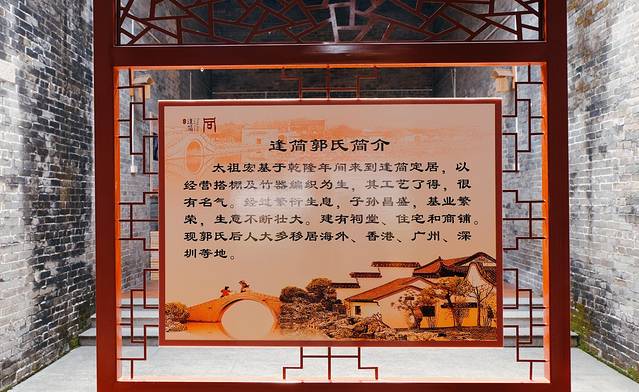 逢简郭氏简介
太祖宏基于乾隆年间来到逢简定居，以
经营搭棚及竹器编织为生，其工艺了得，很
有名气。经过繁衍生息，子孙昌盛，基业繁
荣，生意不断壮大。建有祠堂、住宅和商铺。
现郭氏后人大多移居海外、香港、广州、深
圳等地。